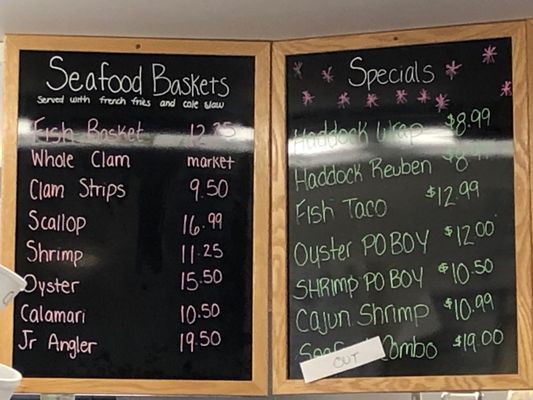 Seafood Baskets
Served with french fries and cole slaw
Fish Basket 12.25
Whole Clam market
Clam Strips 9.50
Scallop 16.99
Shrimp 11.25
Oyster 15.50
Calamari 10.50
Jr Angler 19.50
Specials
Haddock Wrap $8.99
Haddock Reuben $8.99
Fish Taco $12.99
Oyster PO BOY $12.00
SHRIMP PO BOY $10.50
Cajun Shrimp $10.99
Combo $19.00
OUT